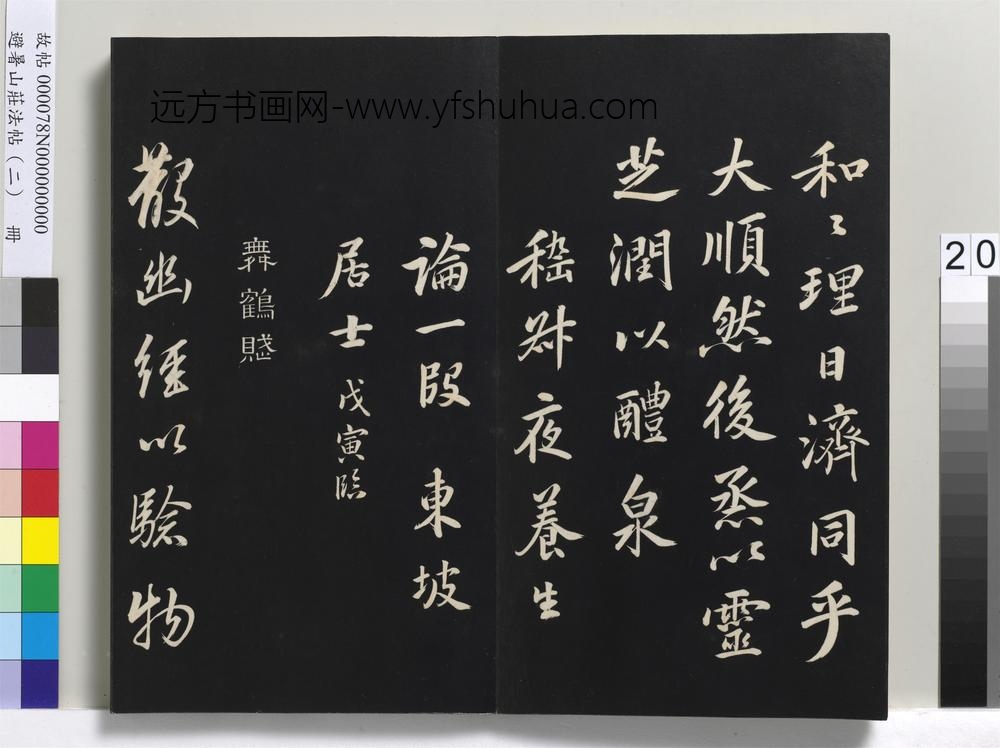 和〻理日濟同乎
大順然後蒸以靈
芝潤以醴泉
嵇叔夜養生
論一段 東坡
居士 戊寅臨
舞鶴賦
散幽經以驗物
远方书画网-www.yfshuhua.com
故帖 000078N000000000
避暑山莊法帖(二) 冊
20